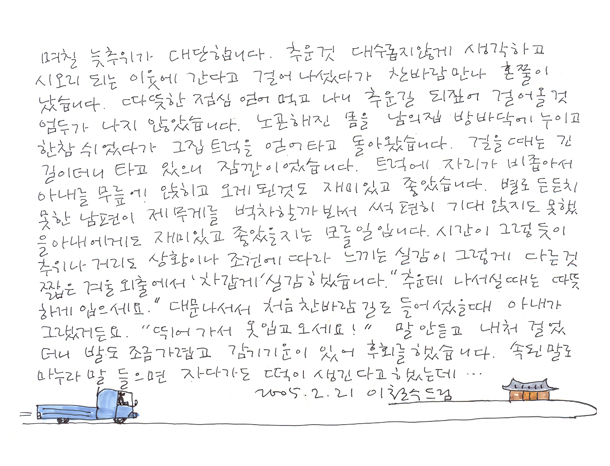 며칠 늦추위가 대단합니다. 추운것 대수롭지않게 생각하고
시오리 되는 이웃에 간다고 걸어 나섰다가 찬바람만나 혼쭐이
났습니다. 따뜻한 점심 얻어 먹고 나니 추운길 되짚어 걸어올 것
엄두가 나지 않았습니다. 노곤해진 몸을 남의집 방바닥에 누이고
한참 쉬었다가 그집트럭을 얻어타고 돌아왔습니다. 걸을때는 긴
길이더니 타고 있으니 잠깐이었습니다. 트럭에 자리가 비좁아서
아내를 무릎에 앉히고 오게된것도 재미있고 좋았습니다. 별로 든든치
못한 남편이 제무게를 벅차할까봐서 썩 편히 기대 앉지도 못했
을아내에게도 재미있고 좋았을지는 모를일입니다. 시간이 그렇듯이
추위나 거리도 상황이나 조건에 따라 느끼는 실감이 그렇게 다른것
짧은 겨울 외출에서 '차갑게' 실감하였습니다. "추운데 나서실때는 따뜻
하게 입으세요." 대문나서서 처음찬바람 길로 들어섰을때 아내가
그랬거든요. "뛰어가서 옷입고오세요!" 말안듣고 내처 걸었
더니 발도 조금가렵고 감기기운이 있어 후회를했습니다. 속된말로
마누라 말 들으면 자다가도 떡이 생긴다고했는데…
2005.2.21 이철수드림